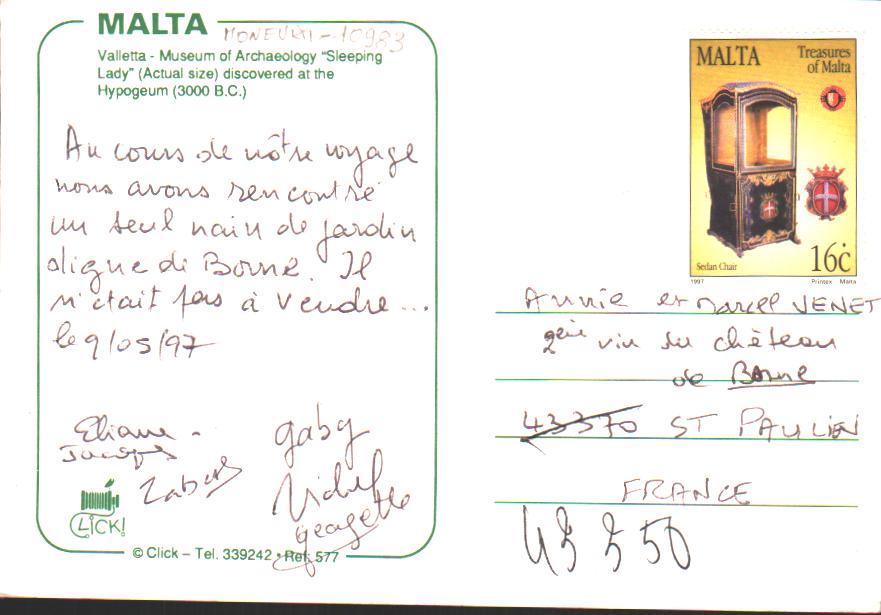 MALTA
Valletta - Museum of Archaeology "Sleeping
Lady" (Actual size) discovered at the
Hypogeum (3000 B.C.)
Au cours de nôtre voyage
nous avons rencontré
un seul nain de jardin
digne de Borne. Il
n'était pas à vendre ...
le 9/05/97
Eliane -
Jacques
gaby
Michel
georgette
CLICK!
© Click – Tel. 339242 • Ref: 577
MALTA
Treasures
of Malta
Sedan Chair
16c
1997
Printex Malta
Annie et Marcel VENET
du château
de Borne
43370 ST PAULIEN
FRANCE
43 350